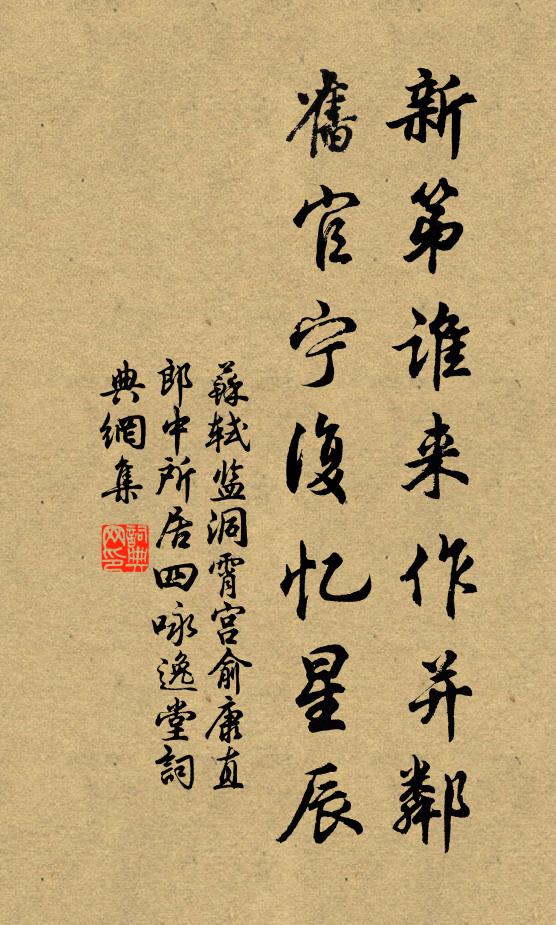 新第谁来作并鄰
舊官宁復忆星辰
蘇轼监洞霄宫俞康直
郎中所居四咏逸堂詞
典網集
詞典网印